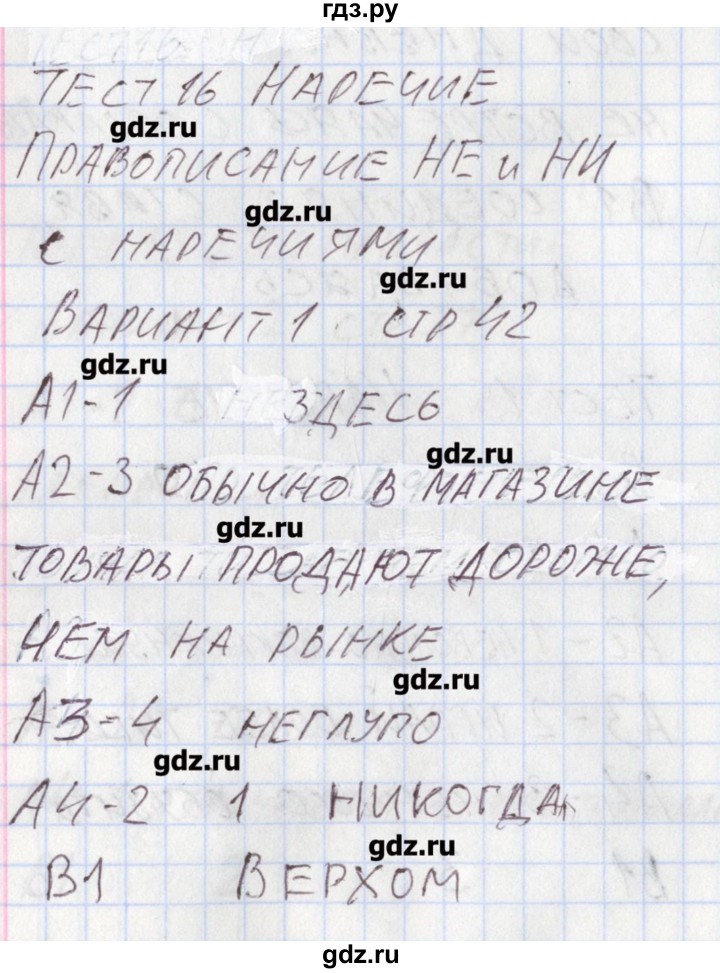 гдз.ру
ТЕСТ 16 НАРЕЧИЕ
gdz.ru
ПРАВОПИСАНИЕ НЕ и НИ
gdz.ru
с НАРЕЧИЯМИ
gdz.ru
ВАРИАНТ 1 СТР 42
gdz.ru
А1-1 НЕЗДЕСЬ
gdz.ru
А2-3 ОБЫЧНО В МАГАЗИНЕ
gdz.ru
ТОВАРЫ ПРОДАЮТ ДОРОЖЕ,
ЧЕМ НА РЫНКЕ
gdz.ru
А3-4 НЕГЛУПО
gdz.ru
А4-2 1 НИКОГДА
gdz.ru
В1 ВЕРХОМ
gdz.ru